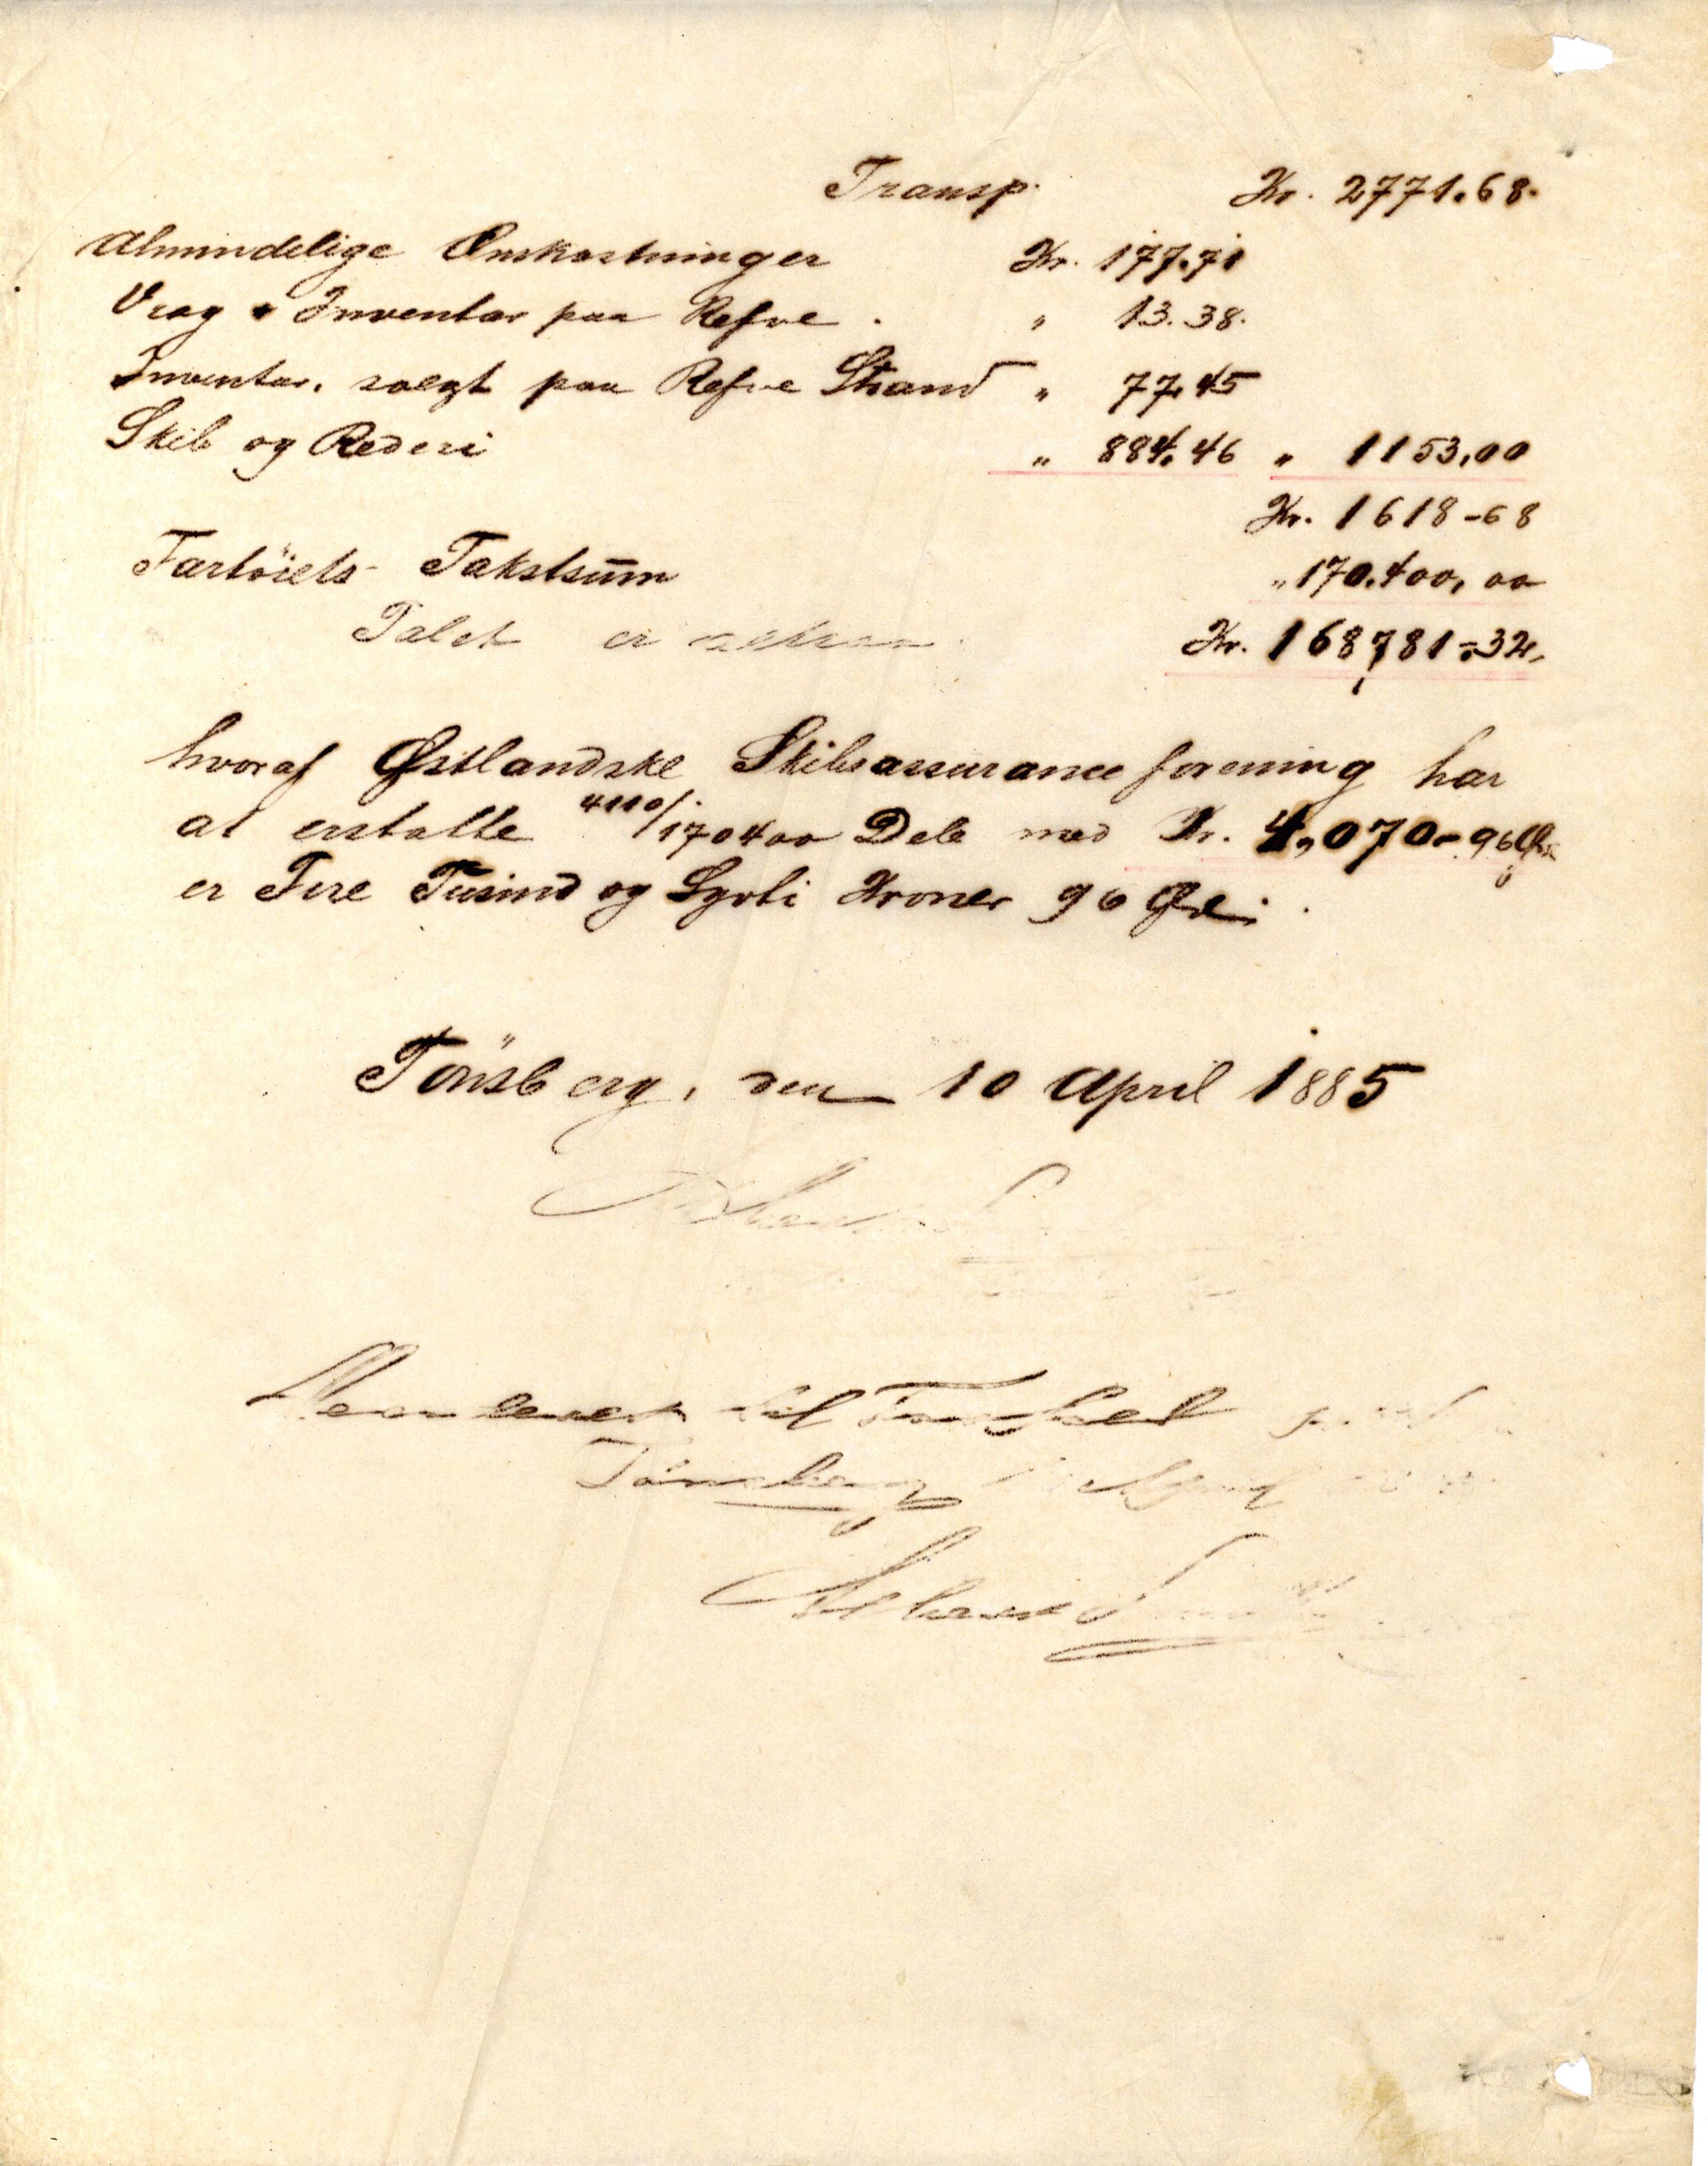 Transp. Kr. 2771.68.
Almindelige Omkostninger Kr. 177.71
Vrag & Inventar paa Refne . " 13.38.
Inventar, solgt paa Refne Strand " 77,45
Skib og Rederi " 884,46 " 1153,00
Kr. 1618-68
Fartöiets Takstsum " 170.400,00
Talet er Kr. 168781-32,
hvoraf Østlandske Skibsassuranceforening har
at erstatte 4110/170400 Dele med Kr. 4,070-96 Øre
er Fire Tusind og Sytti Kroner 96 Øre.
Tönsberg, den 10 April 1885
til
Tönsberg April